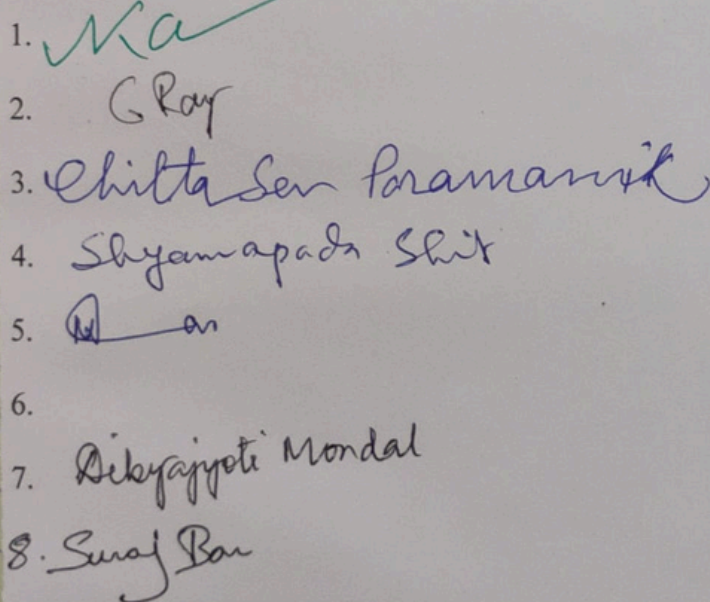 1.
2. G Ray
3. Chitta Sen Paramanik
4. Shyamapada Shit
5.
6.
7. Dibyajyoti Mondal
8. Suraj Bar